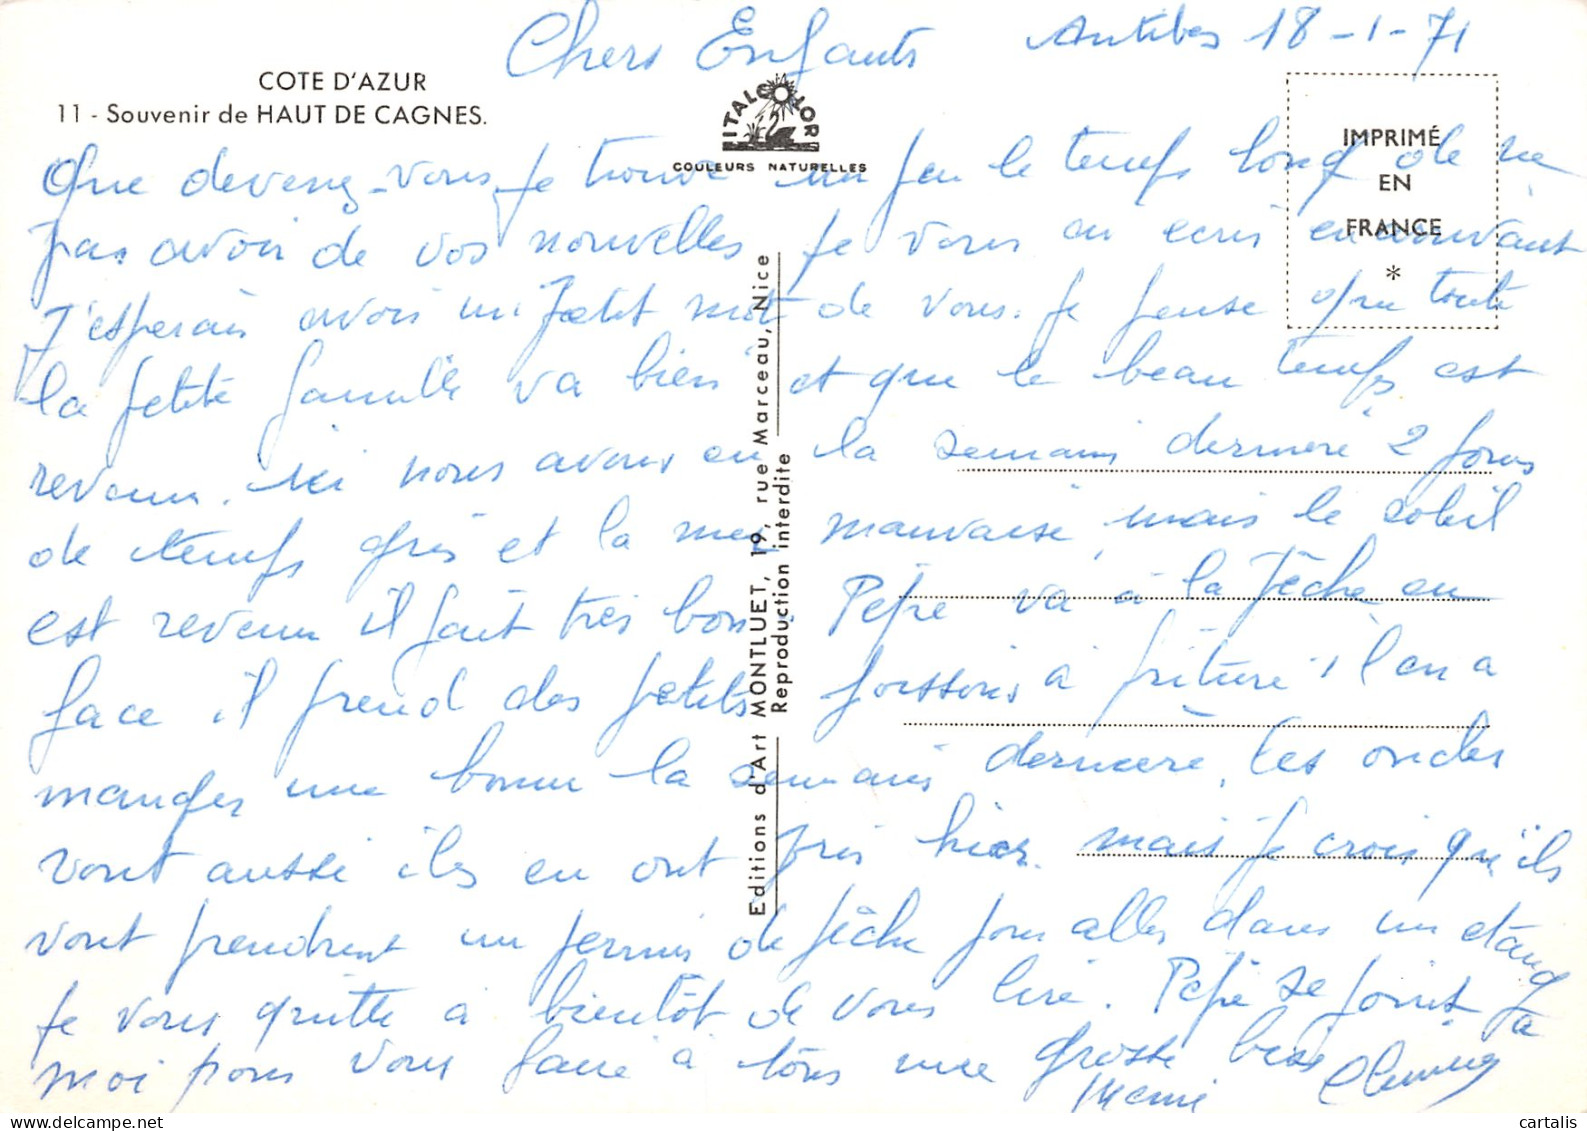 Chers Enfants Antibes 18-1-71
COTE D'AZUR
11 - Souvenir de HAUT DE CAGNES.
ITALCOLOR
COULEURS NATURELLES
IMPRIMÉ
EN
FRANCE
*
Que devenez-vous, je trouve un peu le temps long de ne
pas avoir de vos nouvelles je vous en ecris en
J'esperais avoir un petit mot de vous. je pense que toute
la petite famille va bien et que le beau temps est
revenu. ici nous avons eu la semaine derniere 2 jours
de temps gris et la mer mauvaise, mais le soleil
est revenu il fait très bon Pépé va à la Pêche en
face il prend des petits poissons à friture il en a
manger une bonne la semaine derniere, les oncles
vont aussi ils en ont pris hier. mais je crois qu'ils
vont prendrent un permis de pêche pour aller dans un etang
je vous quitte à bientôt de vous lire. Pépé se joint à
moi pour vous faire à tous une grosse bise
Mémé
Editions d'Art MONTLUET, 19, rue Marceau, Nice
Reproduction interdite
cartalis